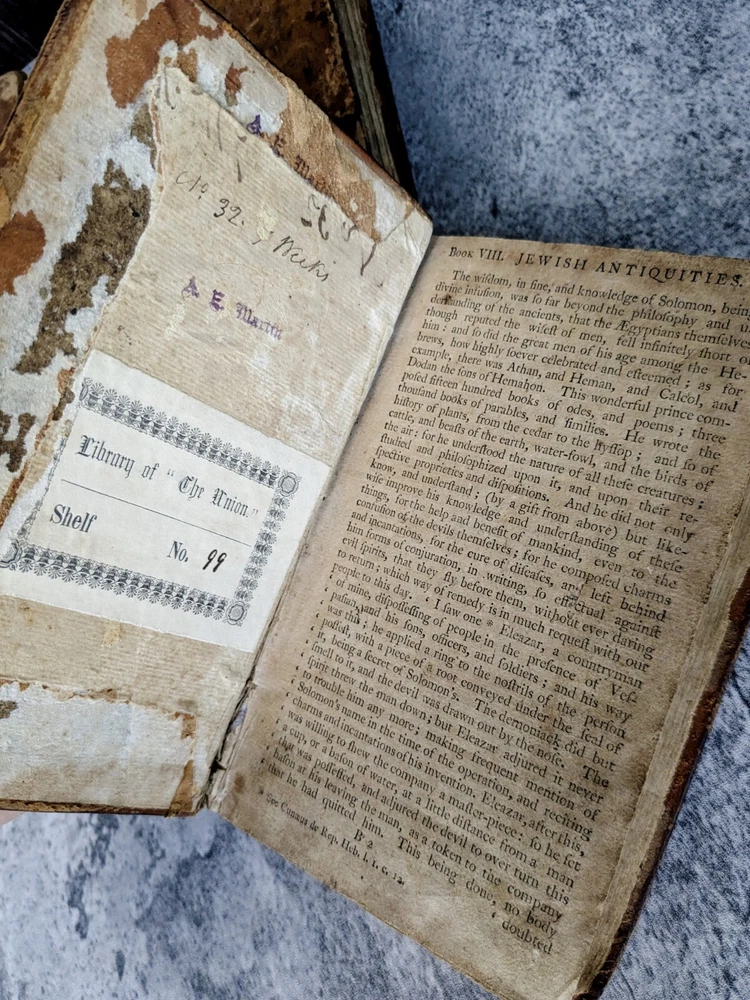 A. E. Ma
No. 32. 7 Weeks
A. E. Martin
Library of "The Union."
Shelf
No. 99
H
Book VIII. JEWISH ANTIQUITIES.
The wiſdom, in fine, and knowledge of Solomon, bein
divine infuſion, was ſo far beyond the philoſophy and u
derſtanding of the ancients, that the Ægyptians themſelves
though reputed the wiſeſt of men, fell infinitely ſhort o
him: and ſo did the great men of his age among the He-
brews, how highly ſoever celebrated and eſteemed; as for
example, there was Athan, and Heman, and Calcol, and
Dodan the ſons of Hemahon. This wonderful prince com-
poſed fifteen hundred books of odes, and poems; three
thouſand books of parables, and ſimilies. He wrote the
hiſtory of plants, from the cedar to the hyſſop; and ſo of
cattle, and beaſts of the earth, water-fowl, and the birds of
the air: for he underſtood the nature of all theſe creatures;
ſtudied and philoſophized upon it, and upon their re-
ſpective proprieties and diſpoſitions. And he did not only
know, and underſtand; (by a gift from above) but like-
wiſe improve his knowledge and underſtanding of theſe
things, for the help and benefit of mankind, even to the
confuſion of the devils themſelves; for he compoſed charms
and incantations, for the cure of diſeaſes, and left behind
him forms of conjuration, in writing, ſo effectual againſt
evil ſpirits, that they fly before them, without ever daring
to return; which way of remedy is in much requeſt with our
people to this day. I ſaw one * Eleazar, a countryman
of mine, diſpoſſeſſing of people in the preſence of Veſ-
paſian, and his ſons, officers, and ſoldiers; and his way
was this; he applied a ring to the noſtrils of the perſon
poſſeſt, with a piece of a root conveyed under the ſeal of
it, being a ſecret of Solomon's. The demoniack did but
ſmell to it, and the devil was drawn out by the noſe. The
ſpirit threw the man down; but Eleazar adjured it never
to trouble him any more; making frequent mention of
Solomon's name in the time of the operation, and reciting
charms and incantations of his invention. Eleazar, after this,
was willing to ſhew the company a maſter-piece: ſo he ſet
a cup, or a baſon of water, at a little diſtance from a man
that was poſſeſſed, and adjured the devil to over turn this
baſon at his leaving the man, as a token to the company
that he had quitted him. This being done, no body
B 2 doubted
See Cunæus de Rep. Heb. l. 1. c. 12.